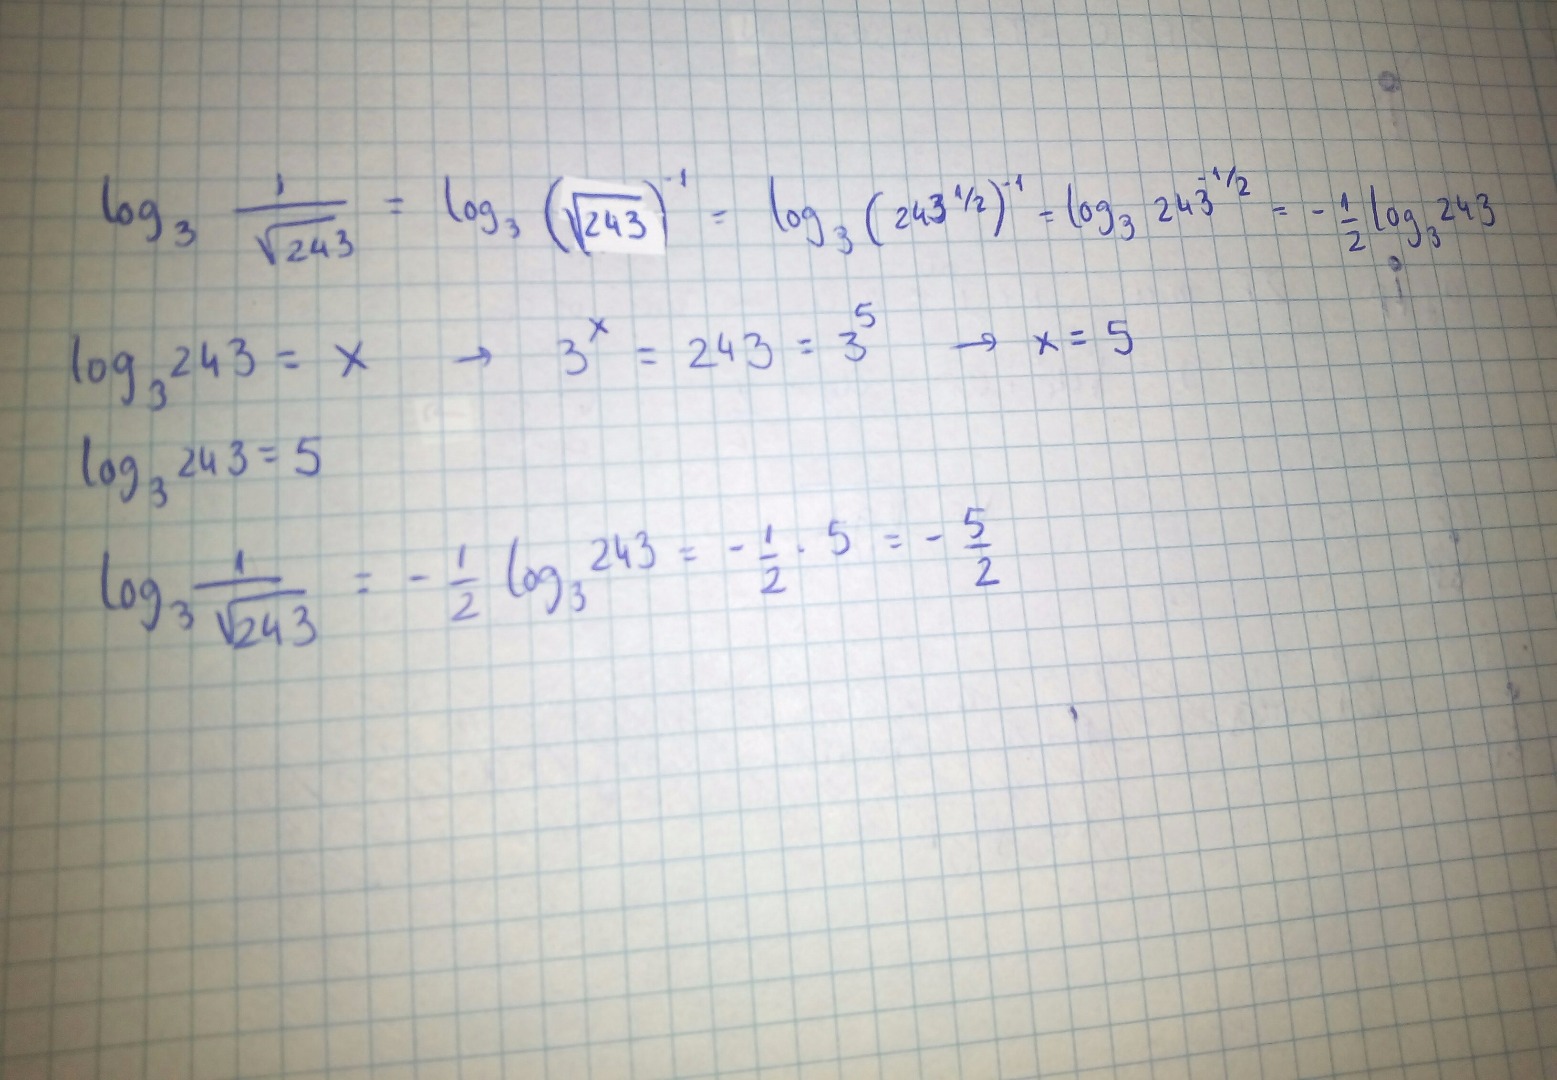 log₃ 1/√243 = log₃ (√243)⁻¹ = log₃ (243^1/2)⁻¹ = log₃ 243^-1/2 = -1/2 log₃ 243
log₃ 243 = x → 3^x = 243 = 3⁵ → x = 5
log₃ 243 = 5
log₃ 1/√243 = -1/2 log₃ 243 = -1/2 · 5 = -5/2